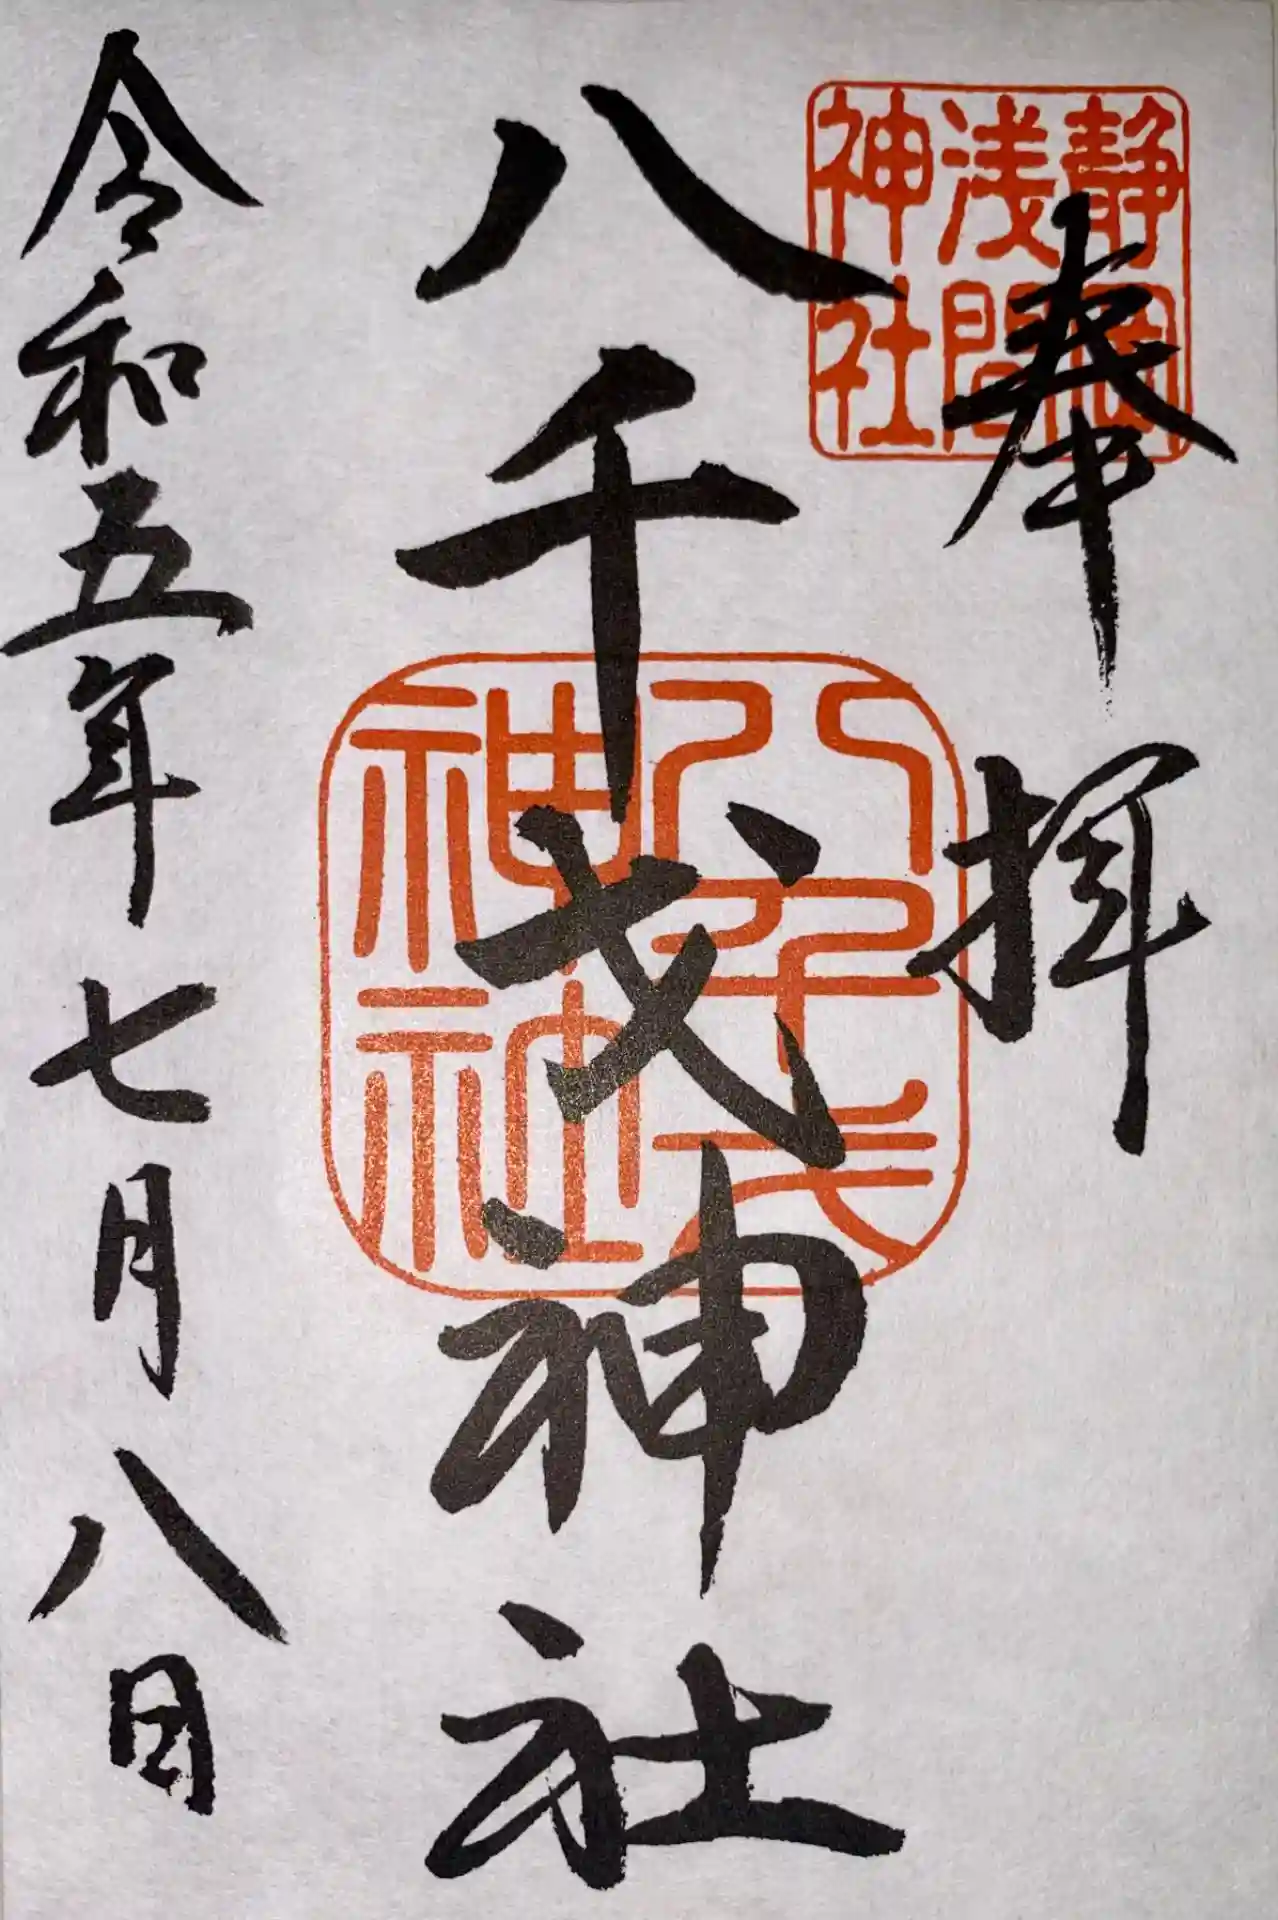 奉拝
静岡
浅間
神社
八千戈神社
八千戈
神社
令和五年七月八日